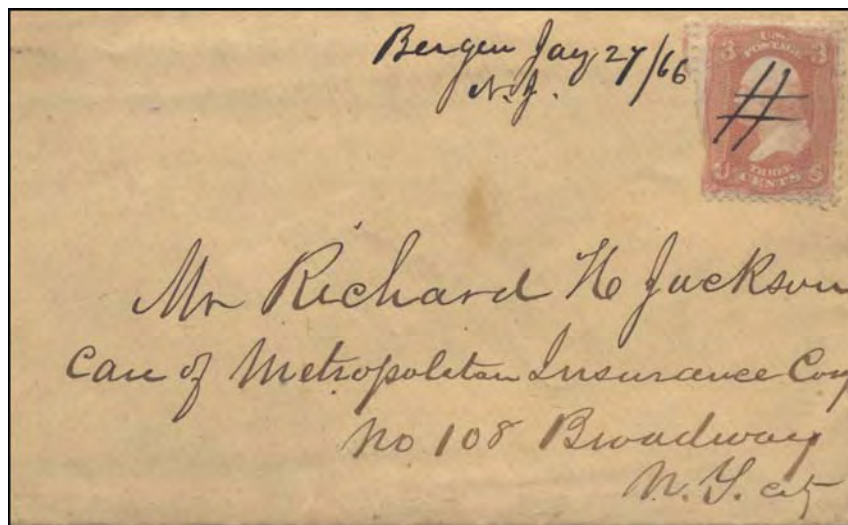 Bergen Jay 27/66
N.J.
U.S.
POSTAGE
3 3
THREE
CENTS
Mr Richard H Jackson
Care of Metropolitan Insurance Coy
No 108 Broadway
N.Y. city